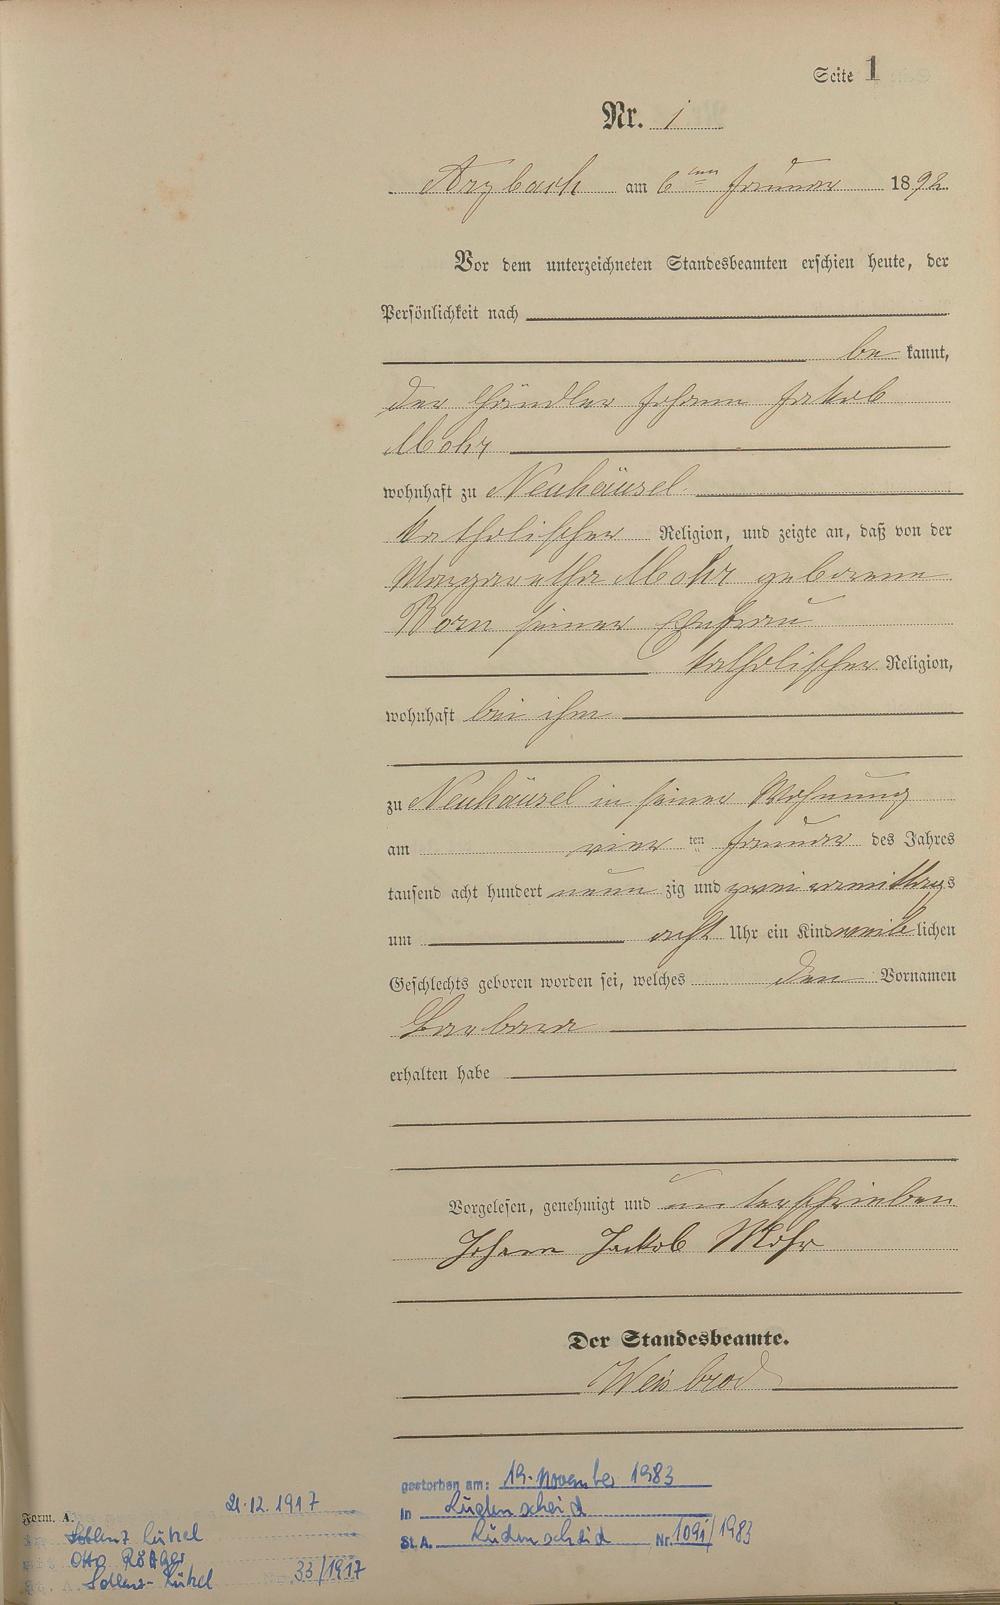 Seite 1
Nr. 1
Arzbach am 6ten Januar 1892.
Vor dem unterzeichneten Standesbeamten erschien heute, der
Persönlichkeit nach
be kannt,
der Händler Johann Jakob
Mohr
wohnhaft zu Neuhäusel
katholischer Religion, und zeigte an, daß von der
Margaretha Mohr geborene
Born seiner Ehefrau
katholischer Religion,
wohnhaft bei ihm
zu Neuhäusel in seiner Wohnung
am vier ten Januar des Jahres
tausend acht hundert neun zig und zwei vormittags
um acht Uhr ein Kind weib lichen
Geschlechts geboren worden sei, welches den Vornamen
Barbara
erhalten habe
Vorgelesen, genehmigt und unterschrieben
Johann Jackob Mohr
Der Standesbeamte.
Weisbrod
gestorben am: 19. November 1983
in Lüdenscheid
St.A. Lüdenscheid Nr. 1091/1983
21.12.1917
Form. A.
Coblenz Lützel
Otto
Coblenz-Lützel 33/1917